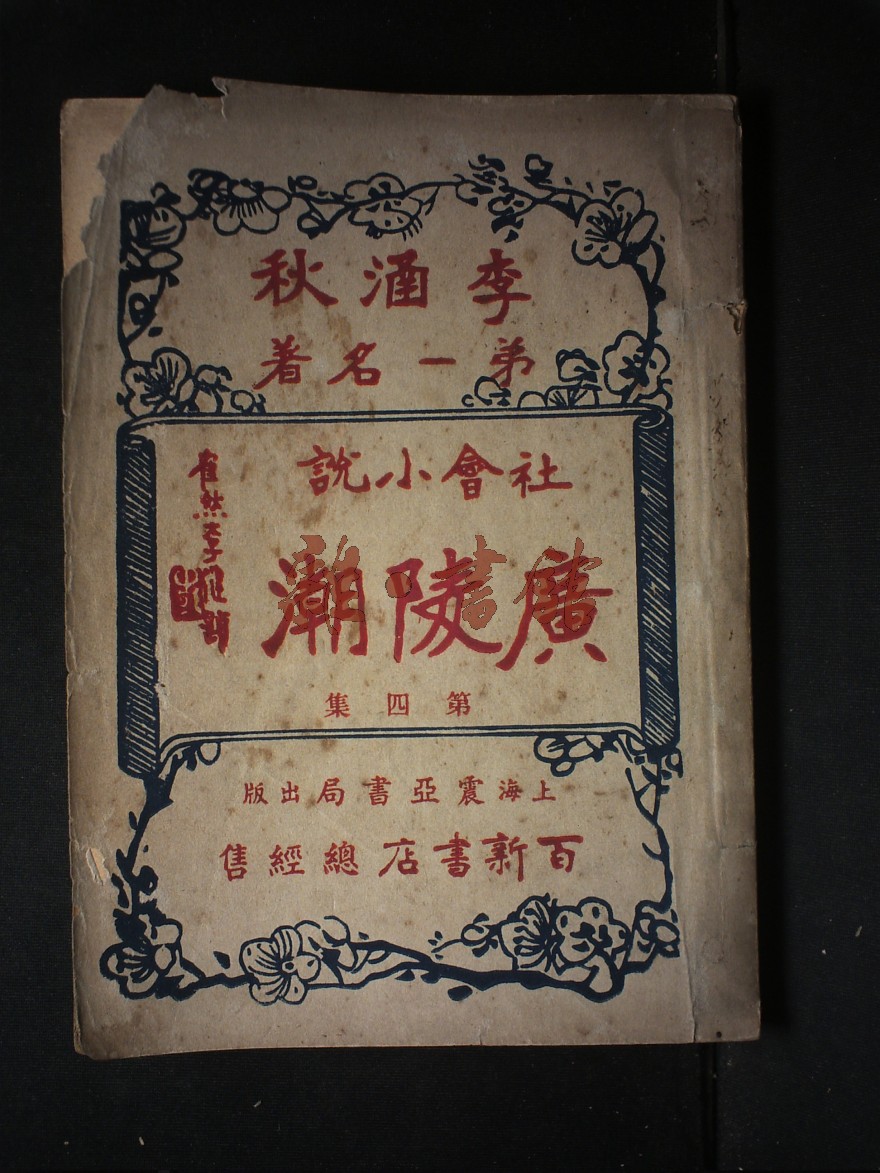 李涵秋
弟一名著
社會小說
廣陵潮
第四集
上海震亞書局出版
百新書店總經售